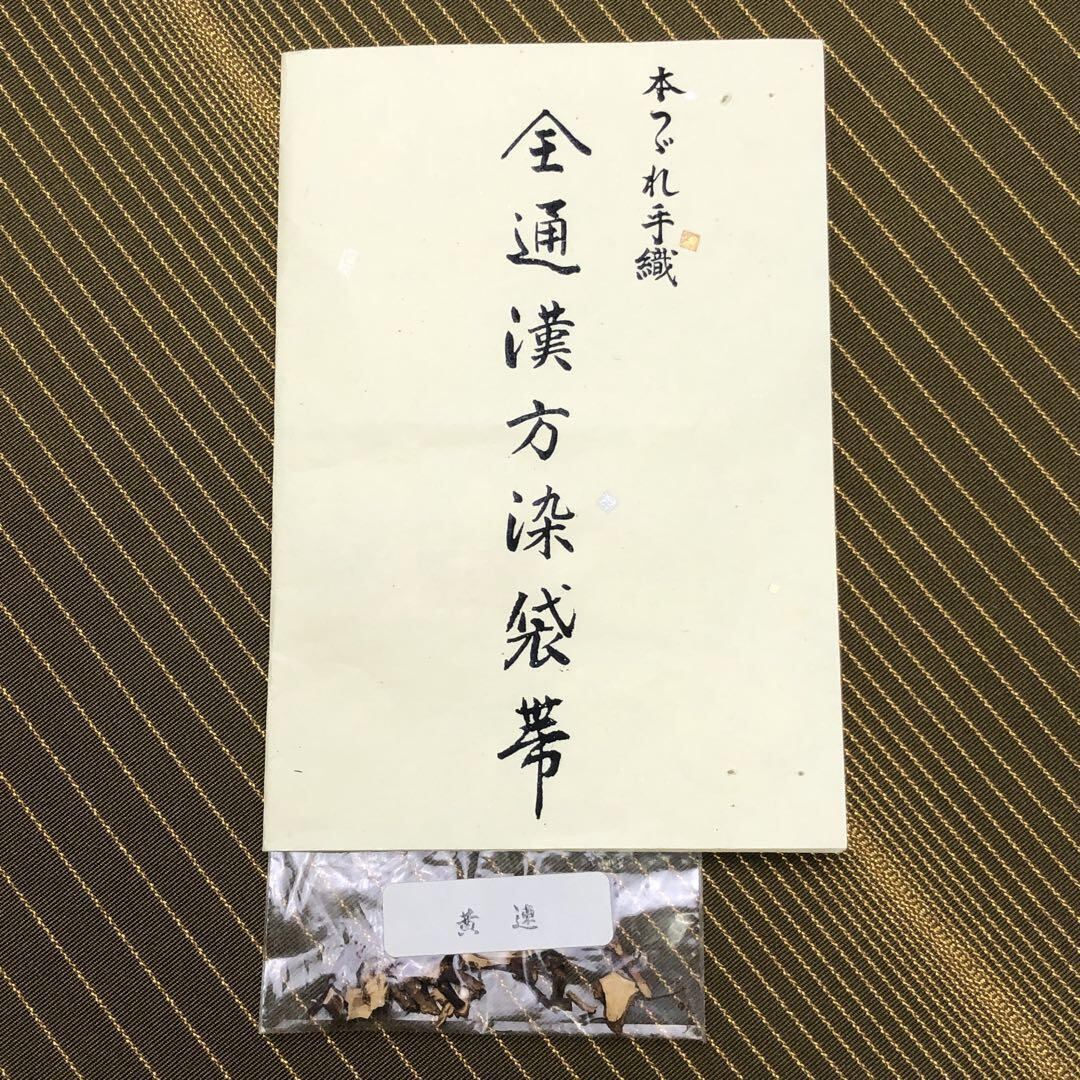 本つづれ手織
全通漢方染袋帯
黄連